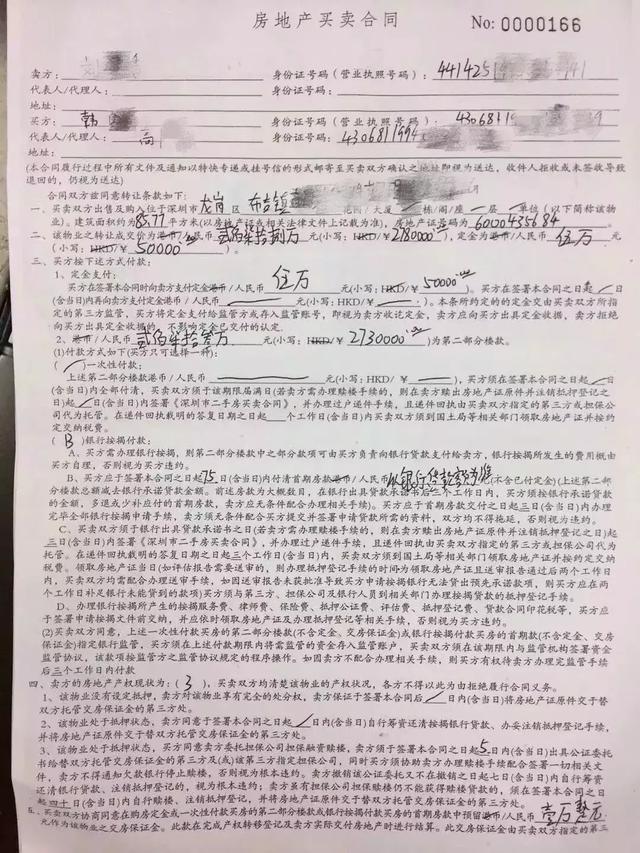 房地产买卖合同 No: 0000166
卖方： 身份证号码（营业执照号码）：441425 141
代表人/代理人： 身份证号码：
地址：
买方：韩 身份证号码（营业执照号码）：4306811 39
代表人/代理人： 身份证号码：4306811994
地址：
(本合同履行过程中所有文件及通知以特快专递或挂号信的形式邮寄至买卖双方确认之地址即视为送达，收件人拒收或未签收导致
退回的，仍视为送达)
合同双方兹同意转让条款如下：
一、买卖双方出售及购入位于深圳市龙岗区布吉镇 花园/大厦 栋/阁/座 层 单位（以下简称该物
业）。建筑面积约为83.77平方米(以房地产证或相关法律文件上记载为准)，房地产证号码为6000435684
二、该物业之转让成交价为港币/人民币贰佰柒拾捌万元(小写：HKD/￥2780000)，定金为港币/人民币伍万
元(小写：HKD/￥50000)。
三、买卖双方按下述方式付款：
1、定金支付：
买方在签署本合同时向卖方支付定金港币/人民币伍万元(小写：HKD/￥50000)。买方在签署本合同之日起 日
(含当日)内再向卖方支付定金港币/人民币 元(小写：HKD/￥ )。本条所约定的的定金交由买卖双方所指
定的第三方监管，买方将定金支付给监管方或存入监管账号，即视为卖方收讫定金，卖方应向买方出具定金收据，卖方拒绝
向买方出具定金收据的，不影响定金已交付的认定.
2、港币/人民币贰佰柒拾叁万元(小写：HKD/￥2730000)为第二部分楼款。
(1)付款方式如下(买方只可选择一种)：
( )一次性付款：
上述第二部分楼款港币/人民币 元(小写：HKD/￥ )，买方须在签署本合同之日起 日
(含当日)内全部付清，买卖双方须于该期限届满日(若卖方需办理赎楼手续的，则在卖方赎出房地产证原件并注销抵押登记之
日)起 日(含当日)内签署《深圳市二手房买卖合同》，并办理过户递件手续，且递件回执由买卖双方指定的第三方或担保公
司代为托管。在递件回执载明的答复日期之日起 个工作日(含当日)内买卖双方须到国土局等相关部门领取房地产证并按约
定交纳税费。
(B)银行按揭付款：
A、买方需办理银行按揭，则第二部分楼款中之部分款项可由买方负责向银行贷款支付给卖方，银行按揭所发生的费用概由
买方自理，否则视为买方违约。
B、买方应于签署本合同之日起75日(含当日)内付清首期房款港币/人民币以银行贷款额为准元(不含已付定金)(上述第二部
分楼款总额减去银行承诺贷款金额。前述房款为大概数目，在银行出具贷款承诺书后三个工作日内，买方须按银行承诺贷款
的金额，多退或少补应付的首期房款，卖方应无条件配合办理相关手续)。买方应于首期房款交付之日起三日(含当日)内办理
完毕全部银行按揭申请手续，卖方须无条件配合买方提交并签署申请贷款所需的资料，双方均不得拖延，否则视为违约。
C、买卖双方须于银行出具贷款承诺书之日(若卖方需办理赎楼手续的，则在卖方赎出房地产证原件并注销抵押登记之日)起
三日(含当日)内签署《深圳市二手房买卖合同》，并办理过户递件手续，且递件回执由买卖双方指定的第三方或担保公司代为
托管。在递件回执载明的答复日期之日起三个工作日(含当日)内，买卖双方须到国土局等相关部门领取房地产证并按约定交纳
税费。领取房地产证当日(如评估报告需要送审的，则办理抵押登记手续的时间为领取房地产证且送审报告通过后两个工作日
内，买卖双方均需配合办理送审手续，如因送审报告未获批准导致买方申请按揭银行无法贷出预先承诺款项，则买方应在两
个工作日补足银行未能贷到的款项)买方须与第三方、担保公司及银行人员到相关部门办理按揭贷款的抵押登记手续。
D、办理银行按揭所产生的按揭服务费、律师费、保险费、抵押公证费、评估费、抵押登记费、贷款合同印花税等，买方应
于签署申请按揭文件前交纳，并应依时领取房地产证及办理抵押登记等相关手续，否则视为买方违约。
(2)买卖双方同意，上述一次性付款买房的第二部分楼款(不含定金、交房保证金)或银行按揭付款买房的首期款(不含定金、交房
保证金)指定银行监管，买方须在上述付款期限内将需监管的资金存入监管账户，买卖双方须在该期限内与监管机构签署资金
监管协议，该款项按监管方之监管协议规定的程序操作。如因卖方不配合办理相关手续，则买方有权待卖方办理完监管手续
后三个工作日内付
四、卖方的房地产产权现状为：(3)，买卖双方均清楚该物业的产权状况，各方不得以此为由拒绝履行合同义务。
1、该物业没有设定抵押，卖方对该物业享有完全的处分权，卖方保证于签署本合同后 日(含当日)内将房地产证原件交于替
双方托管交房保证金的第三方处。
2、该物业处于抵押状态，卖方同意于签署本合同之日起 日内(含当日)自行筹资还清按揭银行贷款、办妥注销抵押登记手续，
并将房地产证原件交于替双方托管交房保证金的第三方处。
3、该物业处于抵押状态，买方同意卖方委托担保公司担保融资赎楼，卖方须于签署本合同之日起5日内(含当日)出具公证委托
书给替双方托管交房保证金的第三方及(或)该第三方指定担保公司，同时买方须协助卖方办理赎楼手续配合签署一切相关文
件，卖方不得通知欠款银行停止赎楼，否则视为根本违约。卖方撤销该公证委托又不在撤销之日起七日(含当日)内自行筹资
还清银行贷款、注销抵押登记的，视为根本违约；卖方虽有担保公司担保赎楼仍不能获得赎楼贷款的，须在签署本合同之日
起四十日(含当日)内自行赎楼、注销抵押登记，并将房地产证原件交于替双方托管交房保证金的第三方处。
5、买卖双方协商同意在购房定金或一次性付款买楼的第二部分楼款或银行按揭付款买房的首期房款中预留港币/人民币壹万整元
元作为该物业之交房保证金。此款在完成产权转移登记及卖方实际交付房地产时进行结算。此交房保证金由买卖双方指定的第三